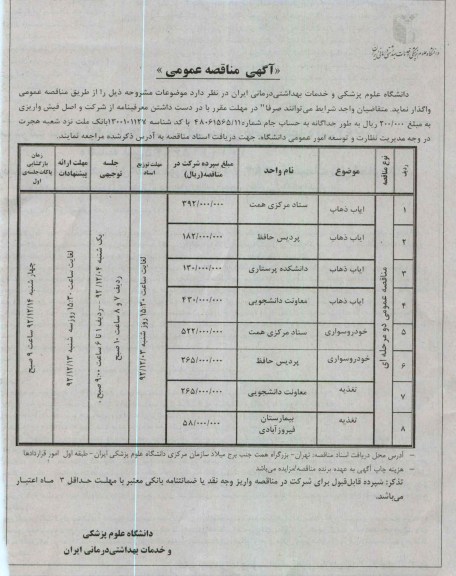 دانشگاه علوم پزشکی و خدمات بهداشتی درمانی ایران
«آگهی مناقصه عمومی»
دانشگاه علوم پزشکی و خدمات بهداشتی‌درمانی ایران در نظر دارد موضوعات مشروحه ذیل را از طریق مناقصه عمومی
واگذار نماید. متقاضیان واجد شرایط می‌توانند صرفا" در مهلت مقرر با در دست داشتن معرفینامه از شرکت و اصل فیش واریزی
به مبلغ ۲۰۰/۰۰۰ ریال به طور جداگانه به حساب جام شماره ۴۸۰۶۱۵۶۵/۱۱ با کد شناسه ۱۳۰۰۱۰۱۱۲۷ بانک ملت نزد شعبه هجرت
در وجه مدیریت نظارت و توسعه امور عمومی دانشگاه، جهت دریافت اسناد مناقصه به آدرس ذکرشده مراجعه نمایند.
ردیف | نوع مناقصه | موضوع | نام واحد | مبلغ سپرده شرکت در مناقصه (ریال) | مهلت توزیع اسناد | جلسه توجیهی | مهلت ارائه پیشنهادات | زمان بازگشایی پاکات جلسه‌ی اول
۱ | ایاب ذهاب | ستاد مرکزی همت | ۳۹۲/۰۰۰/۰۰۰
۲ | ایاب ذهاب | پردیس حافظ | ۱۸۲/۰۰۰/۰۰۰
۳ | ایاب ذهاب | دانشکده پرستاری | ۱۳۰/۰۰۰/۰۰۰
۴ | ایاب ذهاب | معاونت دانشجویی | ۴۳۰/۰۰۰/۰۰۰
۵ | خودروسواری | ستاد مرکزی همت | ۵۲۲/۰۰۰/۰۰۰
۶ | خودروسواری | پردیس حافظ | ۲۶۵/۰۰۰/۰۰۰
۷ | تغذیه | معاونت دانشجویی | ۲۶۵/۰۰۰/۰۰۰
۸ | تغذیه | بیمارستان فیروزآبادی | ۵۸/۰۰۰/۰۰۰
مناقصه عمومی دو مرحله ای
لغایت ساعت ۱۵:۳۰ روز شنبه ۹۲/۱۲/۰۳
یک شنبه ۹۲/۱۲/۰۴ - ردیف ۱ تا ۶ ساعت ۹:۰۰ صبح.
ردیف ۷ و ۸ ساعت ۱۰ صبح
لغایت ساعت ۱۵:۳۰ روز سه شنبه ۹۲/۱۲/۱۳
چهار شنبه ۹۲/۱۲/۱۴ ساعت ۹ صبح
- آدرس محل دریافت اسناد مناقصه: تهران- بزرگراه همت جنب برج میلاد سازمان مرکزی دانشگاه علوم پزشکی ایران- طبقه اول امور قراردادها
- هزینه چاپ آگهی به عهده برنده مناقصه/مزایده می‌باشد
تذکر: سپرده قابل‌قبول برای شرکت در مناقصه واریز وجه نقد یا ضمانتنامه بانکی معتبر با مهلت حداقل ۳ ماه اعتبار
می‌باشد.
دانشگاه علوم پزشکی
و خدمات بهداشتی‌درمانی ایران